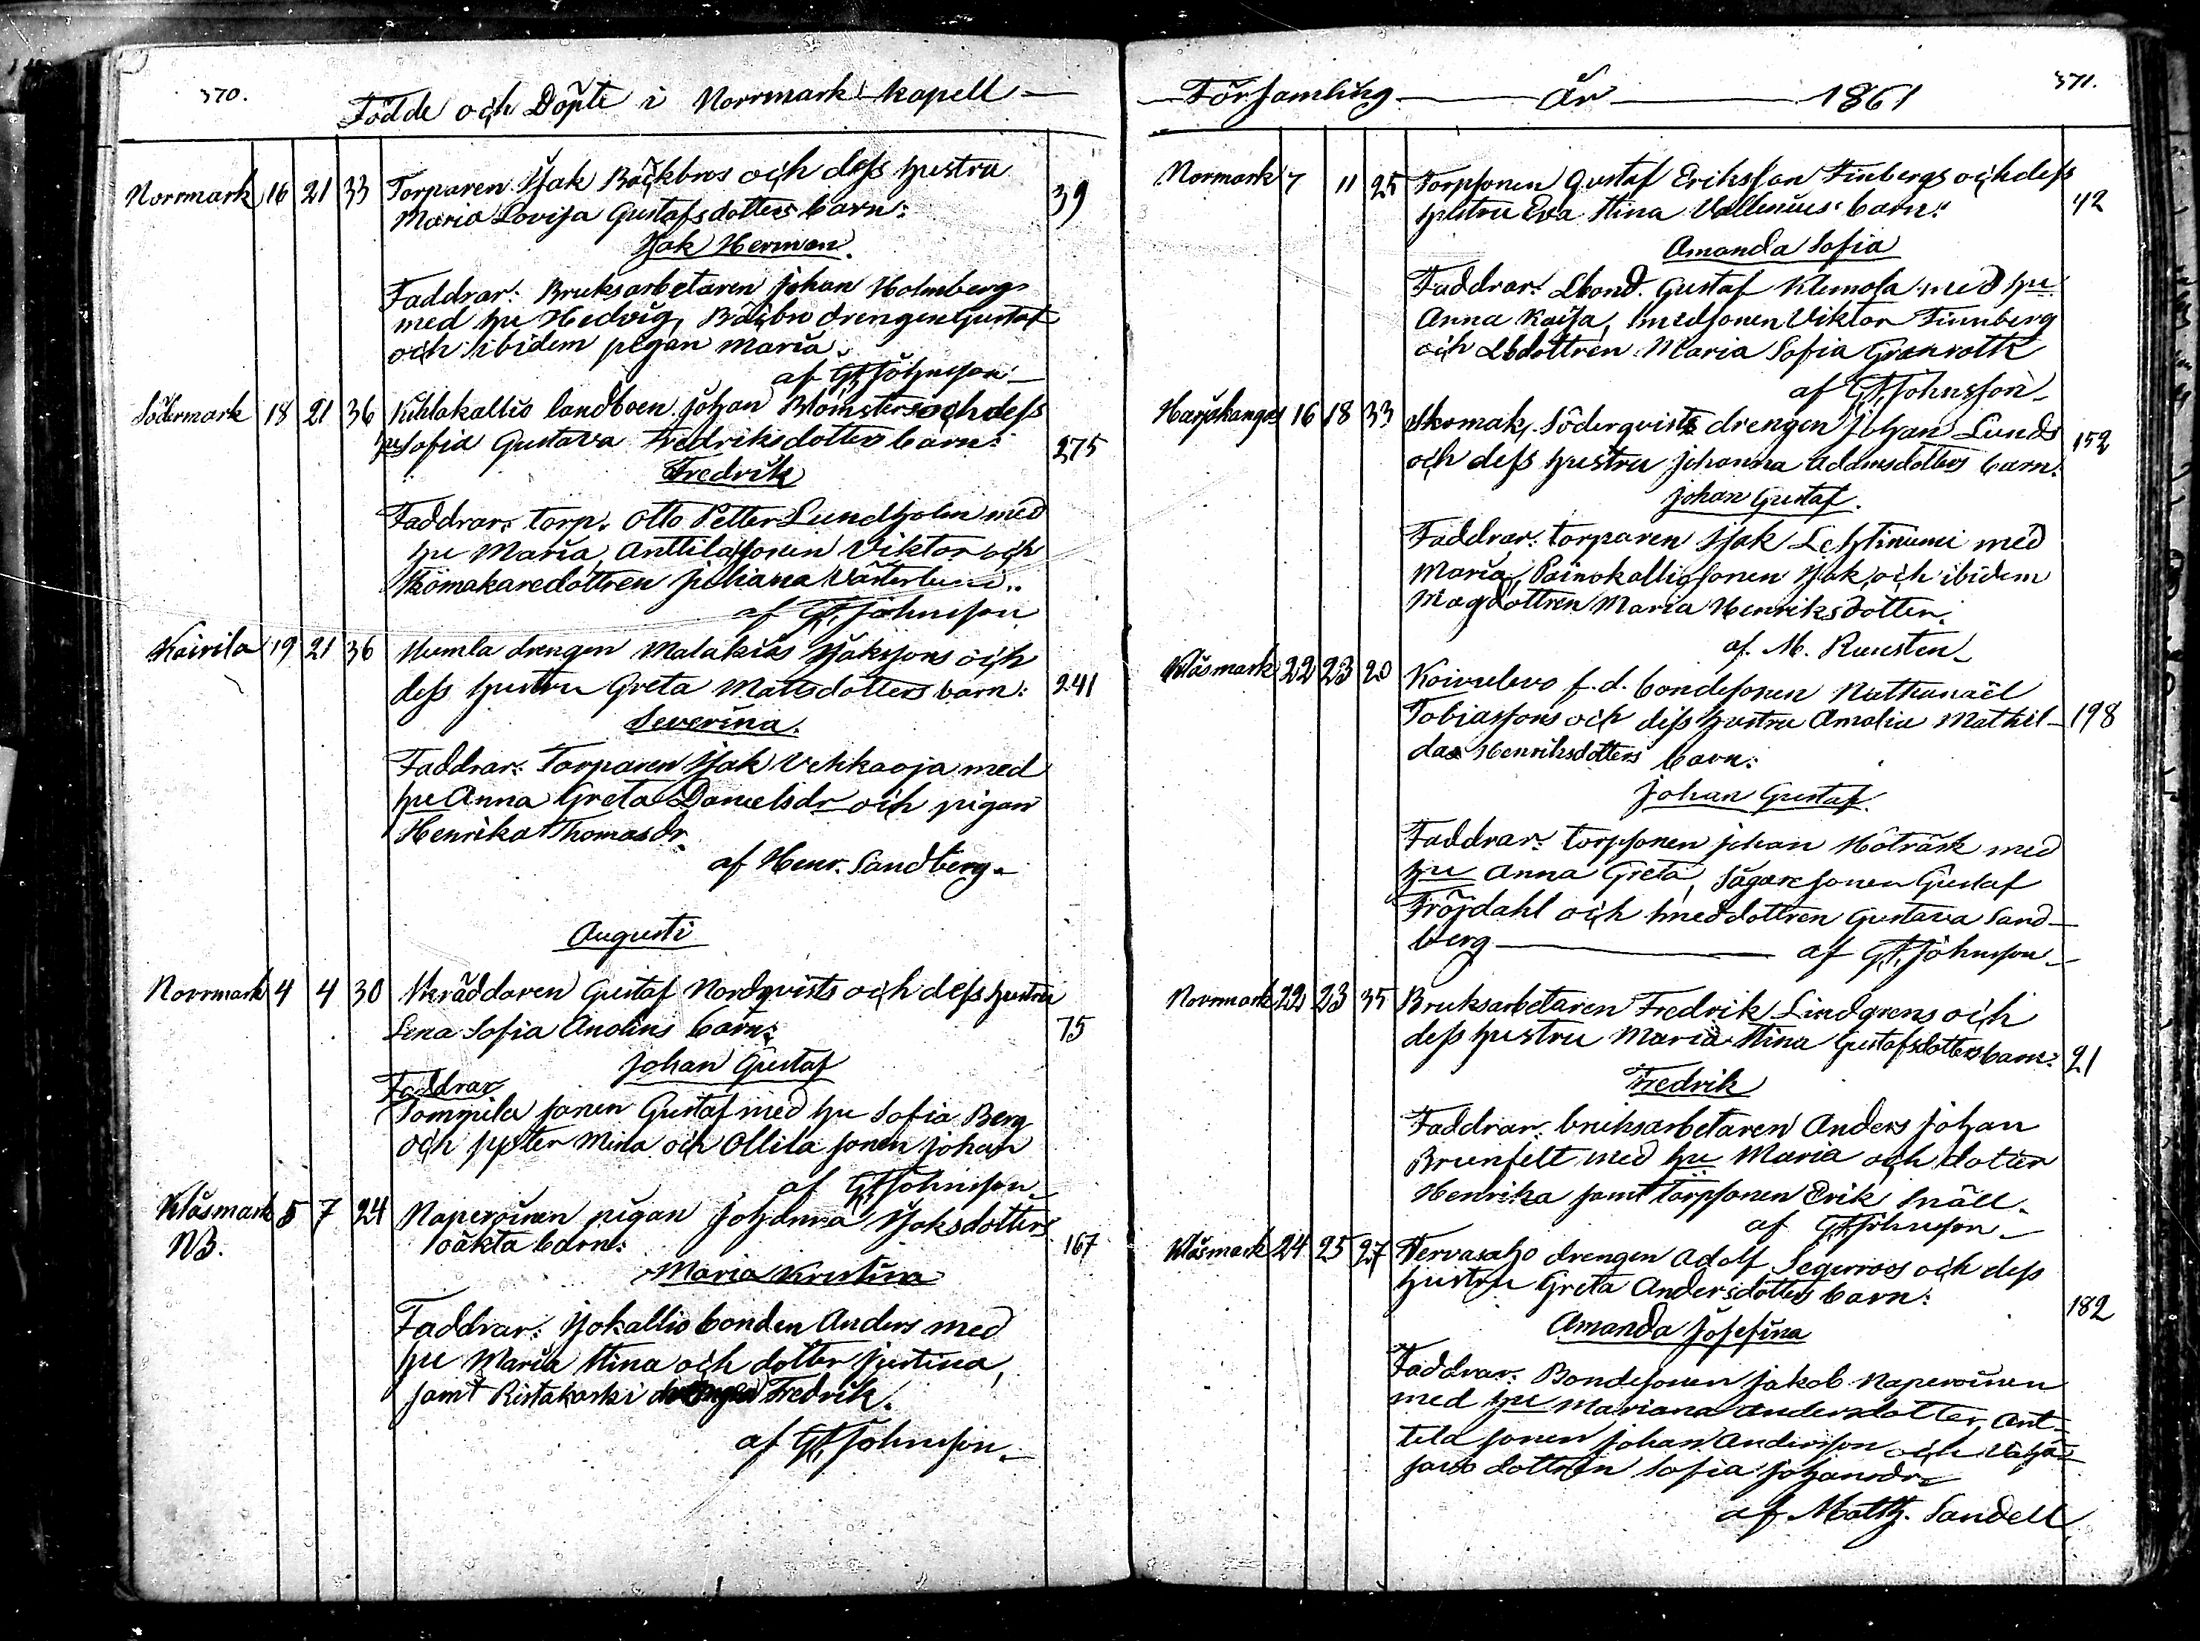 370.
Födde och Döpte i Norrmark kapell
Norrmark 16 21 33 Torparen Isak Bäckbros och dess hustru
Maria Lovisa Gustafsdotters barn: 39
Isak Herman.
Faddrar: Bruksarbetaren Johan Holmberg
med hu Hedvig, Bäcbro drengen Gustaf
och ibidem pigan Maria.
af G A Johnsson
Södermark 18 21 36 Kihlakallio landboen Johan Blomsters och dess
hu Sofia Gustava Fredriksdotters barn: 275
Fredrik
Faddrar: torp. Otto Petter Lundholm med
hu Maria, Anttila sonen Viktor och
skomakaredottren Juliana Västerlund..
af G A Johnsson
Koivila 19 21 36 Humla drengen Malakias Isakssons och
dess hustru Greta Mattsdotters barn: 241
Severina.
Faddrar: Torparen Isak Vehkaoja med
hu Anna Greta Danielsdr och pigan
Henrika Thomasdr.
af Henr. Sandberg.
Augusti
Norrmark 4 4 30 Skräddaren Gustaf Nordqvists och dess hustru
Lena Sofia Anolins barn: 75
Johan Gustaf
Faddrar
Tommila sonen Gustaf med hu Sofia Berg
och syster Mina och Ollila sonen Johan
af G A Johnsson
Klåsmark 5 7 24 Naperoinen pigan Johanna Isaksdotters
NB. oäkta barn: 167
Maria Kristina
Faddrar: Isokallio bonden Anders med
hu Maria Stina och dotter Justina,
samt Ristakoski drengen Fredrik.
af G A Johnsson
Församling År 1861
371.
Norrmark 7 11 25 Torpsonen Gustaf Eriksson Finbergs och dess
hustru Eva Stina Vallenius' barn: 42
Amanda Sofia
Faddrar: Lbond. Gustaf Klemola med hu
Anna Kaisa, smedsonen Viktor Finnberg
och Lbdottren Maria Sofia Granroth
af G A Johnsson
Harjakangas 16 18 33 Skomak. Söderqvists drengen Johan Lunds
och dess hustru Johanna Adamsdotters barn. 152
Johan Gustaf.
Faddrar: torparen Isak Lehtiniemi med
Maria, Painokallio sonen Isak, och ibidem
mågdottren Maria Henriksdotter.
af M. Ruusten
Klåsmark 22 23 20 Koivulevo f.d. bondesonen Nathanaël
Tobiassons och dess hustru Amalia Mathil- 198
das Henriksdotters barn:
Johan Gustaf.
Faddrar: torpsonen Johan Höträsk med
hu Anna Greta, sågaresonen Gustaf
Fröjdahl och smeddottren Gustava Sand-
berg af G A Johnsson
Norrmark 22 23 35 Bruksarbetaren Fredrik Lindgrens och
dess hustru Maria Stina Gustafsdotters barn: 21
Fredrik
Faddrar: bruksarbetaren Anders Johan
Brunfelt med hu Maria och dotter
Henrika samt torpsonen Erik Snäll.
af G A Johnsson
Klåsmark 24 25 27 Tervasaho drengen Adolf Segerroos och dess
hustru Greta Andersdotters barn: 182
Amanda Josefina
Faddrar: Bondesonen Jakob Naperoinen
med hu Mariana Andersdotter, Ant-
tila sonen Johan Andersson och
dottren Sofia Johansdr
af Matth. Sandell